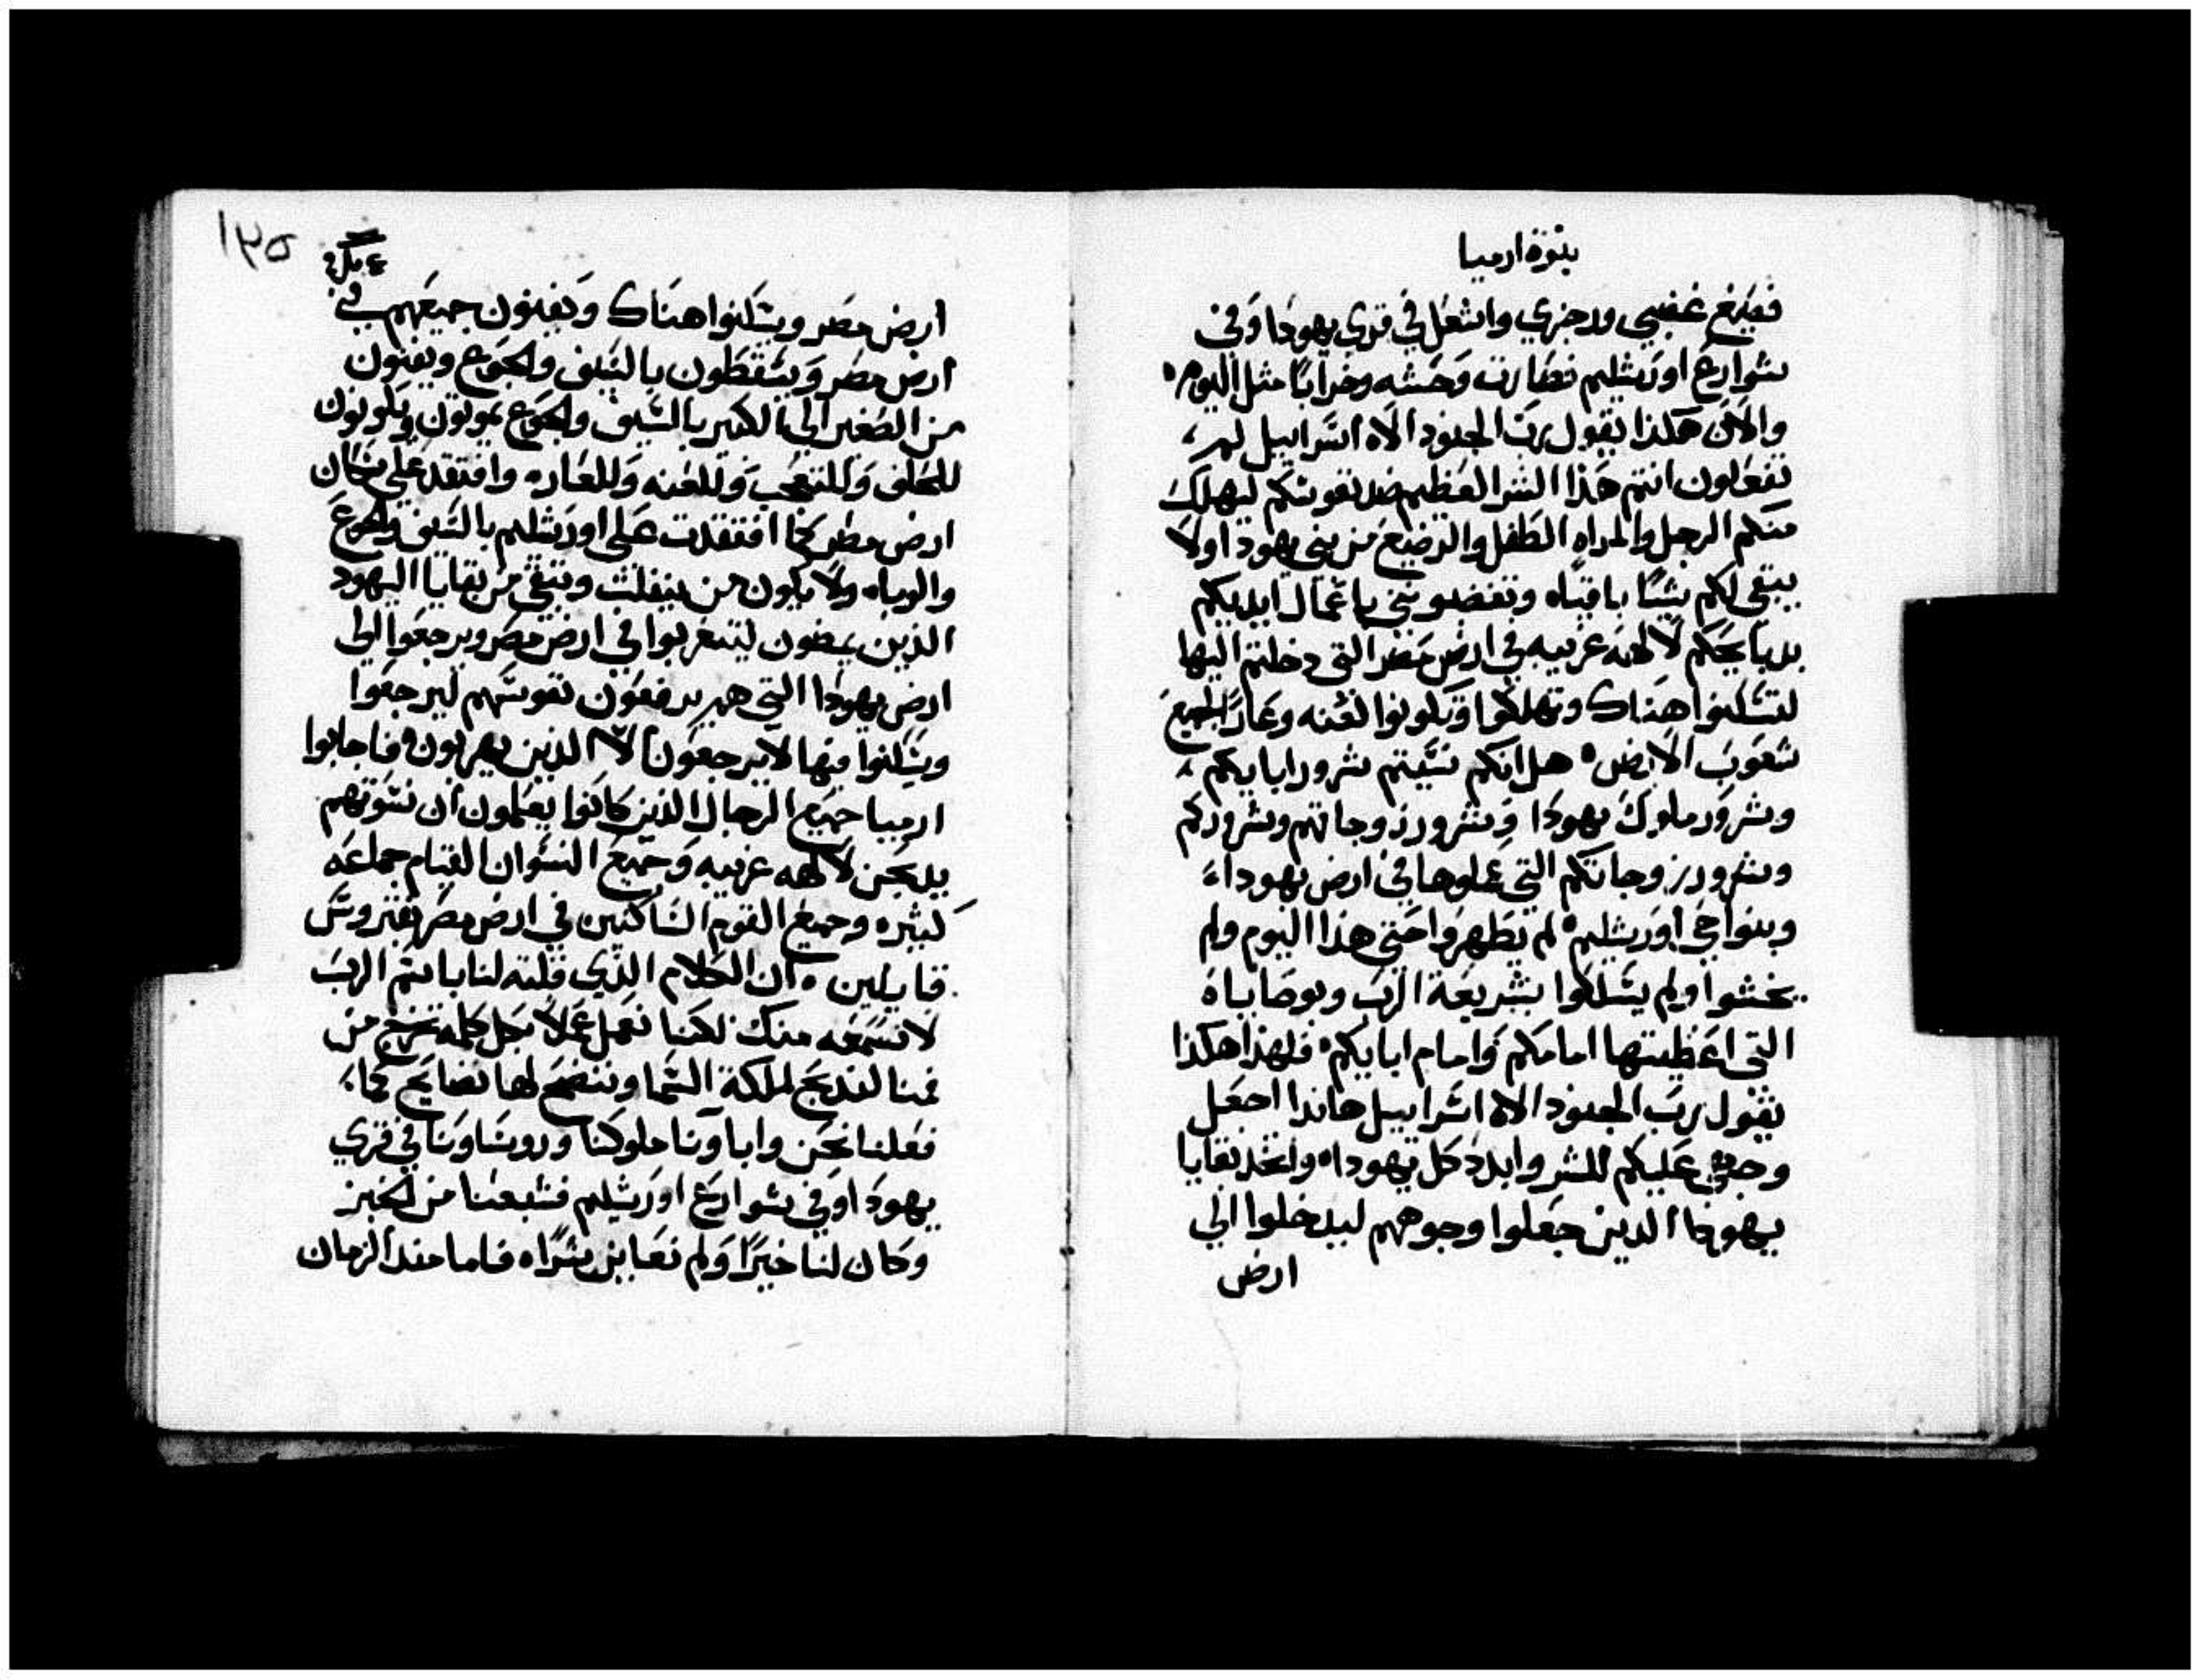 بنوة ارميا
فصبغ غضبي ورجزي واشتعل في قري يهودا وفي
شوارع اورشليم فصارت وحشه وخرابًا مثل اليوم
والان هكذا يقول رب الجنود الاه اسراييل لم
تفعلون انتم هذا الشر العظيم ضد نفوسكم ليهلك
منكم الرجل والمراه الطفل والرضيع من بني يهودا ولا
يبقي لكم شيًا باقيًا وتغضبونني باعمال ايديكم
بدبايحكم لالهه غريبه في ارض مصر التي دخلتم اليها
لتسكنوا هناك وتهلكوا وتكونوا لعنه وعارًا لجميع
شعوب الارض هل انكم نسيتم شرور ابايكم
وشرور ملوك يهودا وشرور زوجاتهم وشروركم
وشرور زوجاتكم التي عملوها في ارض يهودا
وبنواحي اورشليم لم يطهروا حتي هذا اليوم ولم
يخشوا ولم يسلكوا بشريعة الرب وبوصاياه
التي اعطيتها امامكم وامام ابايكم فلهذا هكذا
يقول رب الجنود الاه اسراييل هاندا اجعل
وجهي عليكم للشر وابدد كل يهودا واتخد بقايا
يهودا الدين جعلوا وجوههم ليدخلوا الي
ارض
١٣٥
ارض مصر ويسكنوا هناك ويفنون جميعهم في
ارض مصر ويسقطون بالسيف والجوع ويفنون
من الصغير الي الكبير بالسيف والجوع يموتون ويكونون
للحلف وللتعجب وللعنه وللعاره وافتقد علي سكان
ارض مصر كما افتقدت علي اورشليم بالسيف والجوع
والوباء ولا يكون من ينفلت ويبقي من بقايا اليهود
الذين يمضون ليتغربوا في ارض مصر ويرجعوا الي
ارض يهودا التي هم يرفعون نفوسهم ليرجعوا
ويسكنوا فيها لا يرجعون الا الذين يهربون فاجابوا
ارميا جميع الرجال الذين كانوا يعلمون ان نسوتهم
يدبحن لالهه غريبه وجميع النسوان القيام جماعه
كثيره وجميع القوم الساكنين في ارض مصر بفتروس
قايلين ان الكلام الذي قلته لنا باسم الرب
لا نسمعه منك لكننا نعمل عملا بكل كلمه تخرج من
فمنا لندبح لملكة السما وننضح لها نضايح كما
فعلنا نحن واباونا ملوكنا وروساونا في قري
يهودا وفي شوارع اورشليم فشبعنا من الخبز
وكان لنا خيرًا ولم نعاين شرًا فاما مند الزمان